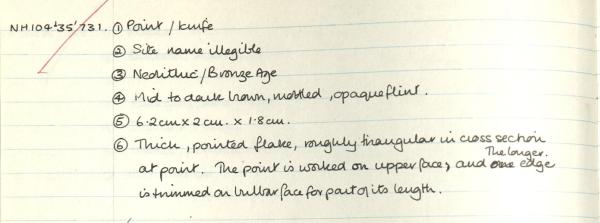 NH104'35'731. ① Point / knife
② Site name illegible
③ Neolithic/Bronze Age
④ Mid to dark brown, mottled, opaque flint.
⑤ 6.2cm x 2cm. x 1.8cm.
⑥ Thick, pointed flake, roughly triangular in cross section
at point. The point is worked on upper face, and The longer. edge
is trimmed on bulbar face for part of its length.